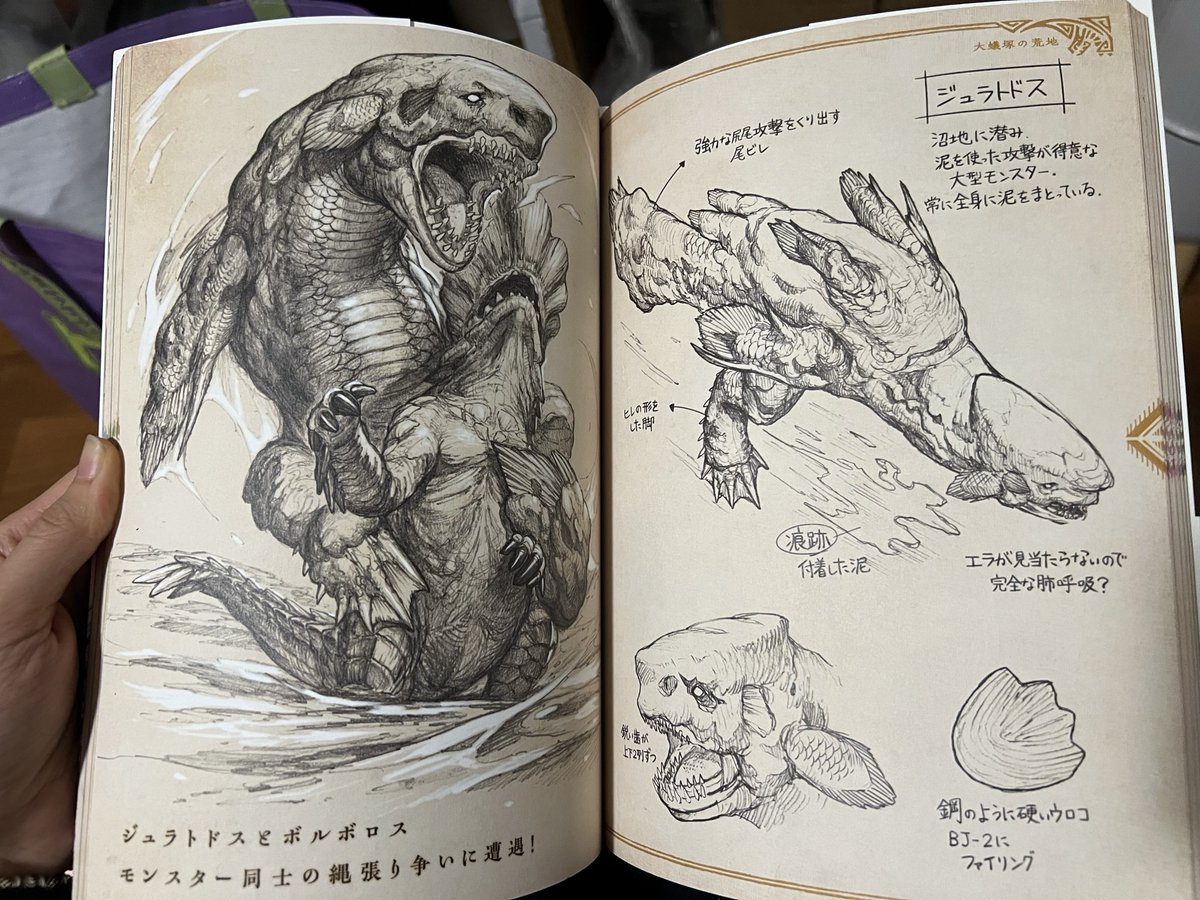 ジュラトドスとボルボロス
モンスター同士の縄張り争いに遭遇!
大蟻塚の荒地
ジュラトドス
沼地に潜み、
泥を使った攻撃が得意な
大型モンスター。
常に全身に泥をまとっている。
強力な尻尾攻撃をくり出す
尾ビレ
ヒレの形を
した脚
痕跡
付着した泥
エラが見当たらないので
完全な肺呼吸?
鋭い歯が
上下2列ずつ
鋼のように硬いウロコ
BJ-2に
ファイリング